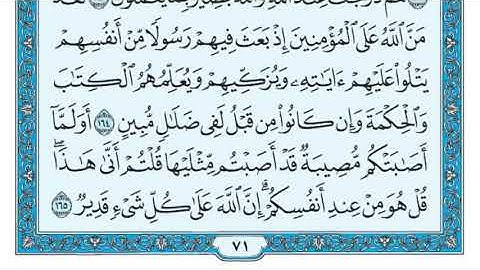 هُمْ دَرَجَٰتٌ عِندَ ٱللَّهِ وَٱللَّهُ بَصِيرٌۢ بِمَا يَعْمَلُونَ ١٦٣ لَقَدْ
مَنَّ ٱللَّهُ عَلَى ٱلْمُؤْمِنِينَ إِذْ بَعَثَ فِيهِمْ رَسُولًا مِّنْ أَنفُسِهِمْ
يَتْلُوا۟ عَلَيْهِمْ ءَايَٰتِهِۦ وَيُزَكِّيهِمْ وَيُعَلِّمُهُمُ ٱلْكِتَٰبَ
وَٱلْحِكْمَةَ وَإِن كَانُوا۟ مِن قَبْلُ لَفِى ضَلَٰلٍ مُّبِينٍ ١٦٤ أَوَلَمَّآ
أَصَٰبَتْكُم مُّصِيبَةٌ قَدْ أَصَبْتُم مِّثْلَيْهَا قُلْتُمْ أَنَّىٰ هَٰذَا ۖ
قُلْ هُوَ مِنْ عِندِ أَنفُسِكُمْ ۗ إِنَّ ٱللَّهَ عَلَىٰ كُلِّ شَىْءٍ قَدِيرٌ ١٦٥
٧١